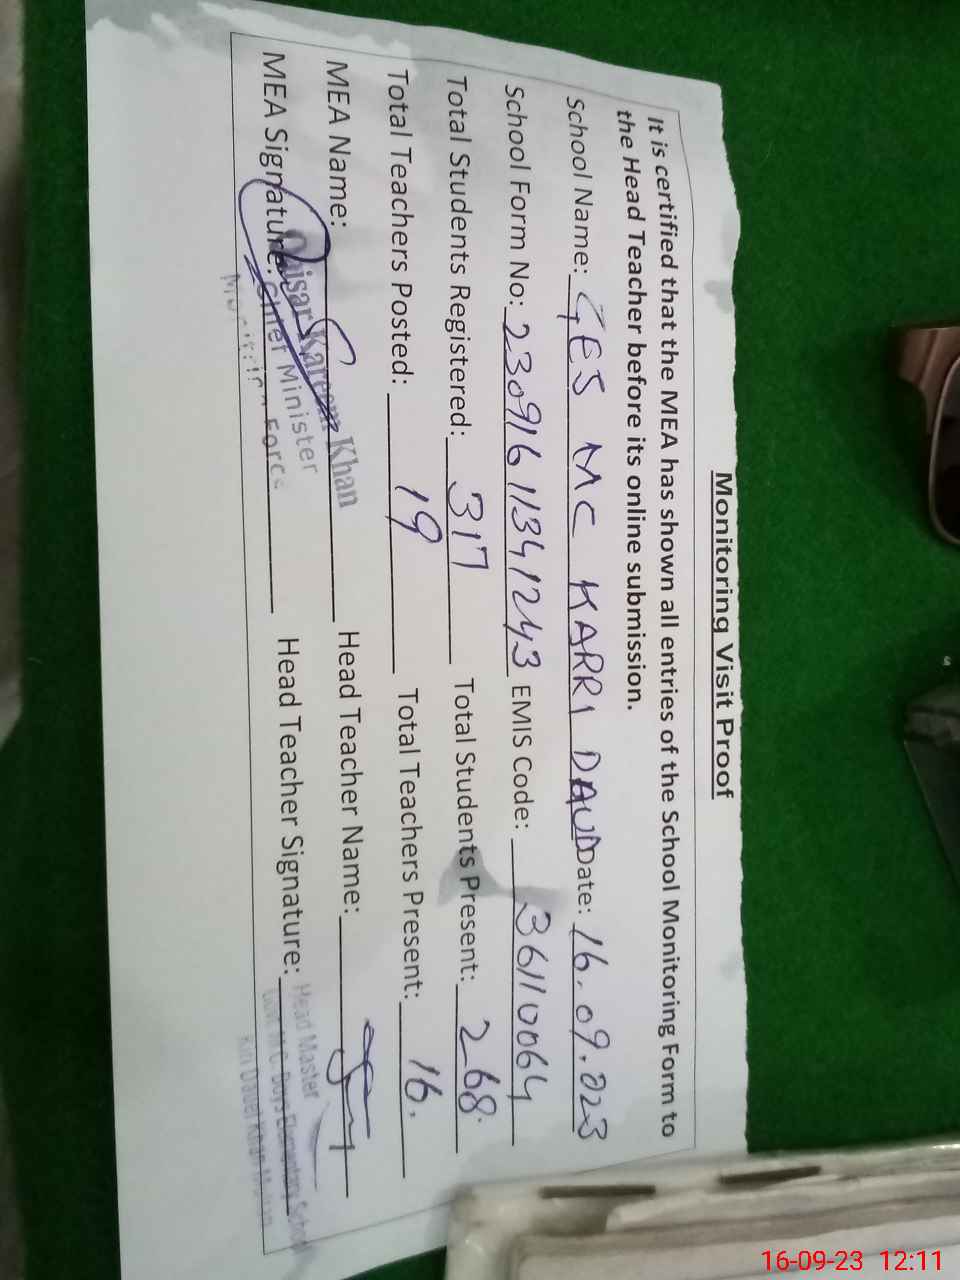 Monitoring Visit Proof
It is certified that the MEA has shown all entries of the School Monitoring Form to
the Head Teacher before its online submission.
School Name: GES MC KARRI DAUD Date: 16.09.023
School Form No: 230916 11341243 EMIS Code: 36110064
Total Students Registered: 317 Total Students Present: 268
Total Teachers Posted: 19 Total Teachers Present: 16.
MEA Name: Head Teacher Name:
Qaisar Kareem Khan
MEA Signature: Head Teacher Signature:
Chief Minister
Force
Head Master
Govt. M.C. Boys Elementary School
16-09-23 12:11